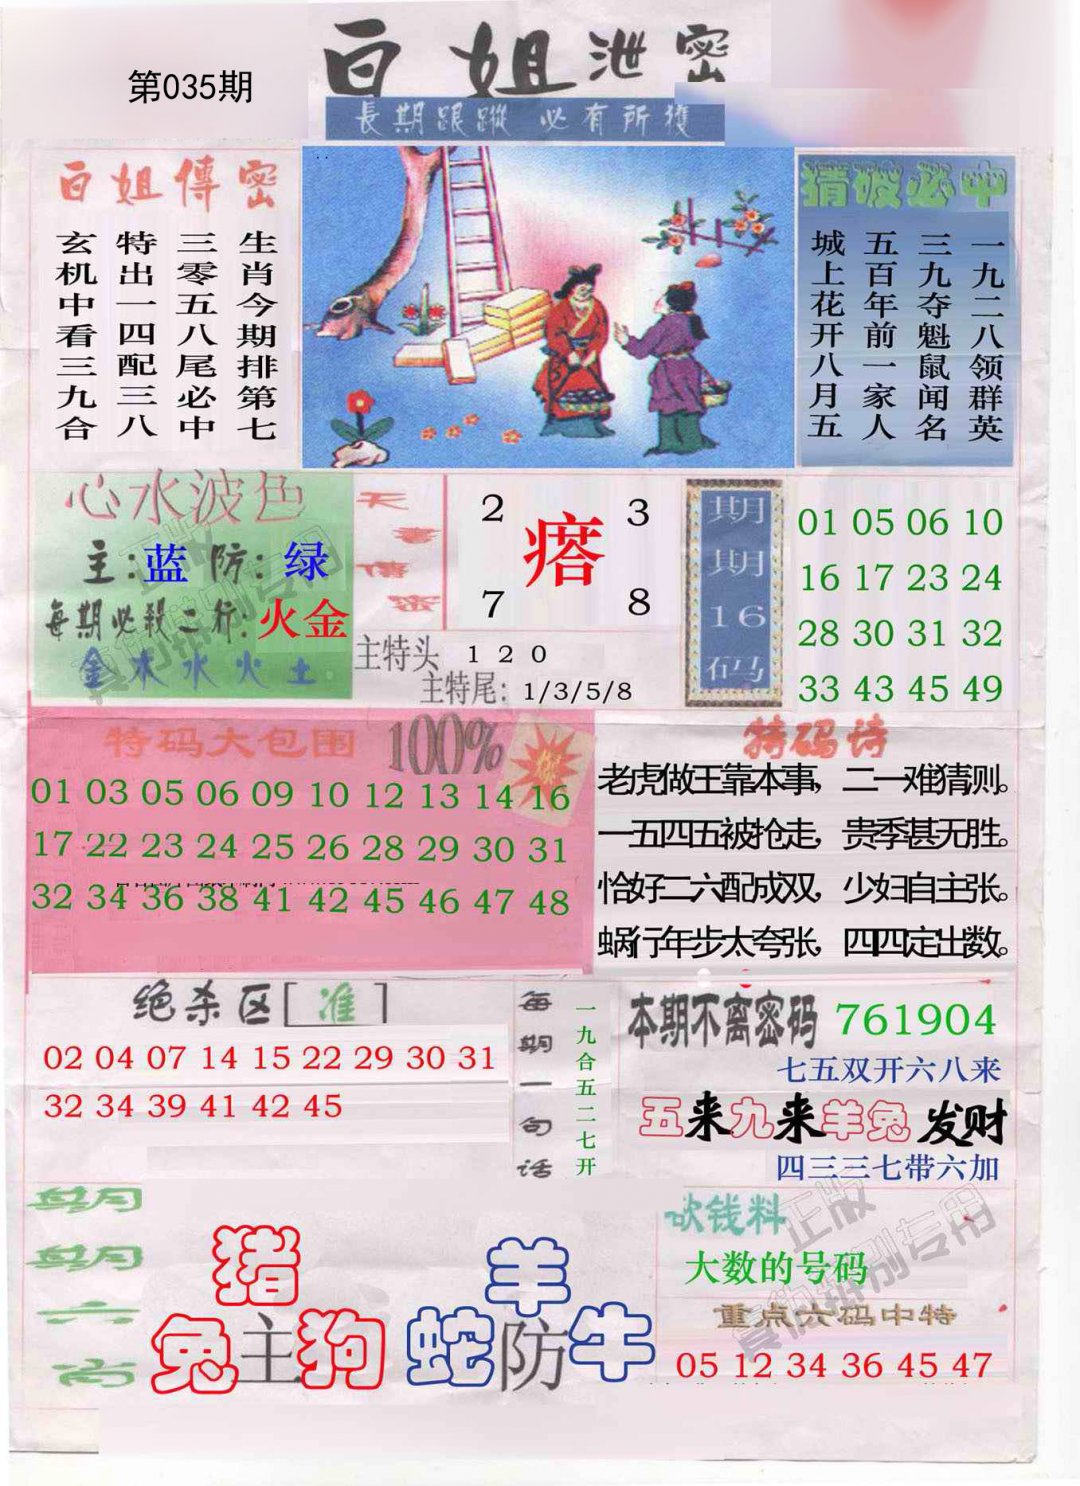 第035期
白姐泄密
長期跟蹤 必有所獲
白姐傳密
生肖今期排第七
三零五八尾必中
特出一四配三八
玄机中看三九合
猜破必中
一九二八领群英
三九夺魁鼠闻名
五百年前一家人
城上花开八月五
心水波色
主:蓝 防:绿
每期必殺二行:火金
金木水火土
天書傳密
2 3
瘩
7 8
主特头 1 2 0
主特尾: 1/3/5/8
期期16码
01 05 06 10
16 17 23 24
28 30 31 32
33 43 45 49
特码大包围 100%
01 03 05 06 09 10 12 13 14 16
17 22 23 24 25 26 28 29 30 31
32 34 36 38 41 42 45 46 47 48
特码诗
老虎做王靠本事，二一难猜测。
一五四五被抢走，贵季甚无胜。
恰好二六配成双，少妇自主张。
蜗行年步太夸张，四四定出数。
绝杀区[准]
02 04 07 14 15 22 29 30 31
32 34 39 41 42 45
每期一句话
一九合五二七开
本期不离密码 761904
七五双开六八来
五来九来羊兔发财
四三三七带六加
期期六肖
猪
兔主狗
羊
蛇防牛
砍钱料
大数的号码
重点六码中特
05 12 34 36 45 47